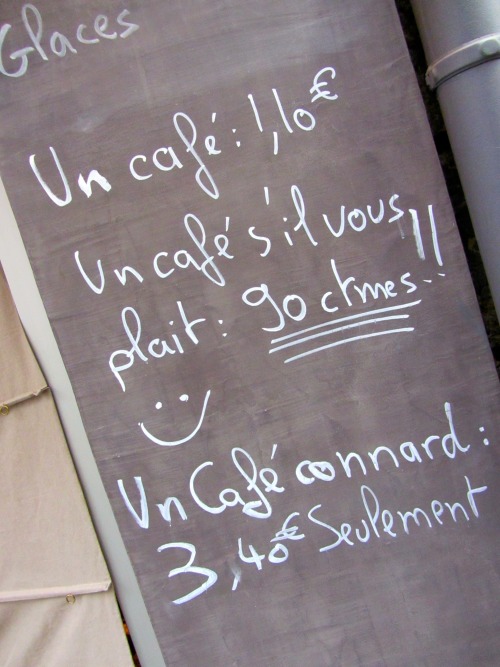 Glaces
Un café : 1,10€
Un café s'il vous
plait : 90 ctmes !!
Un Café connard :
3,40€ Seulement